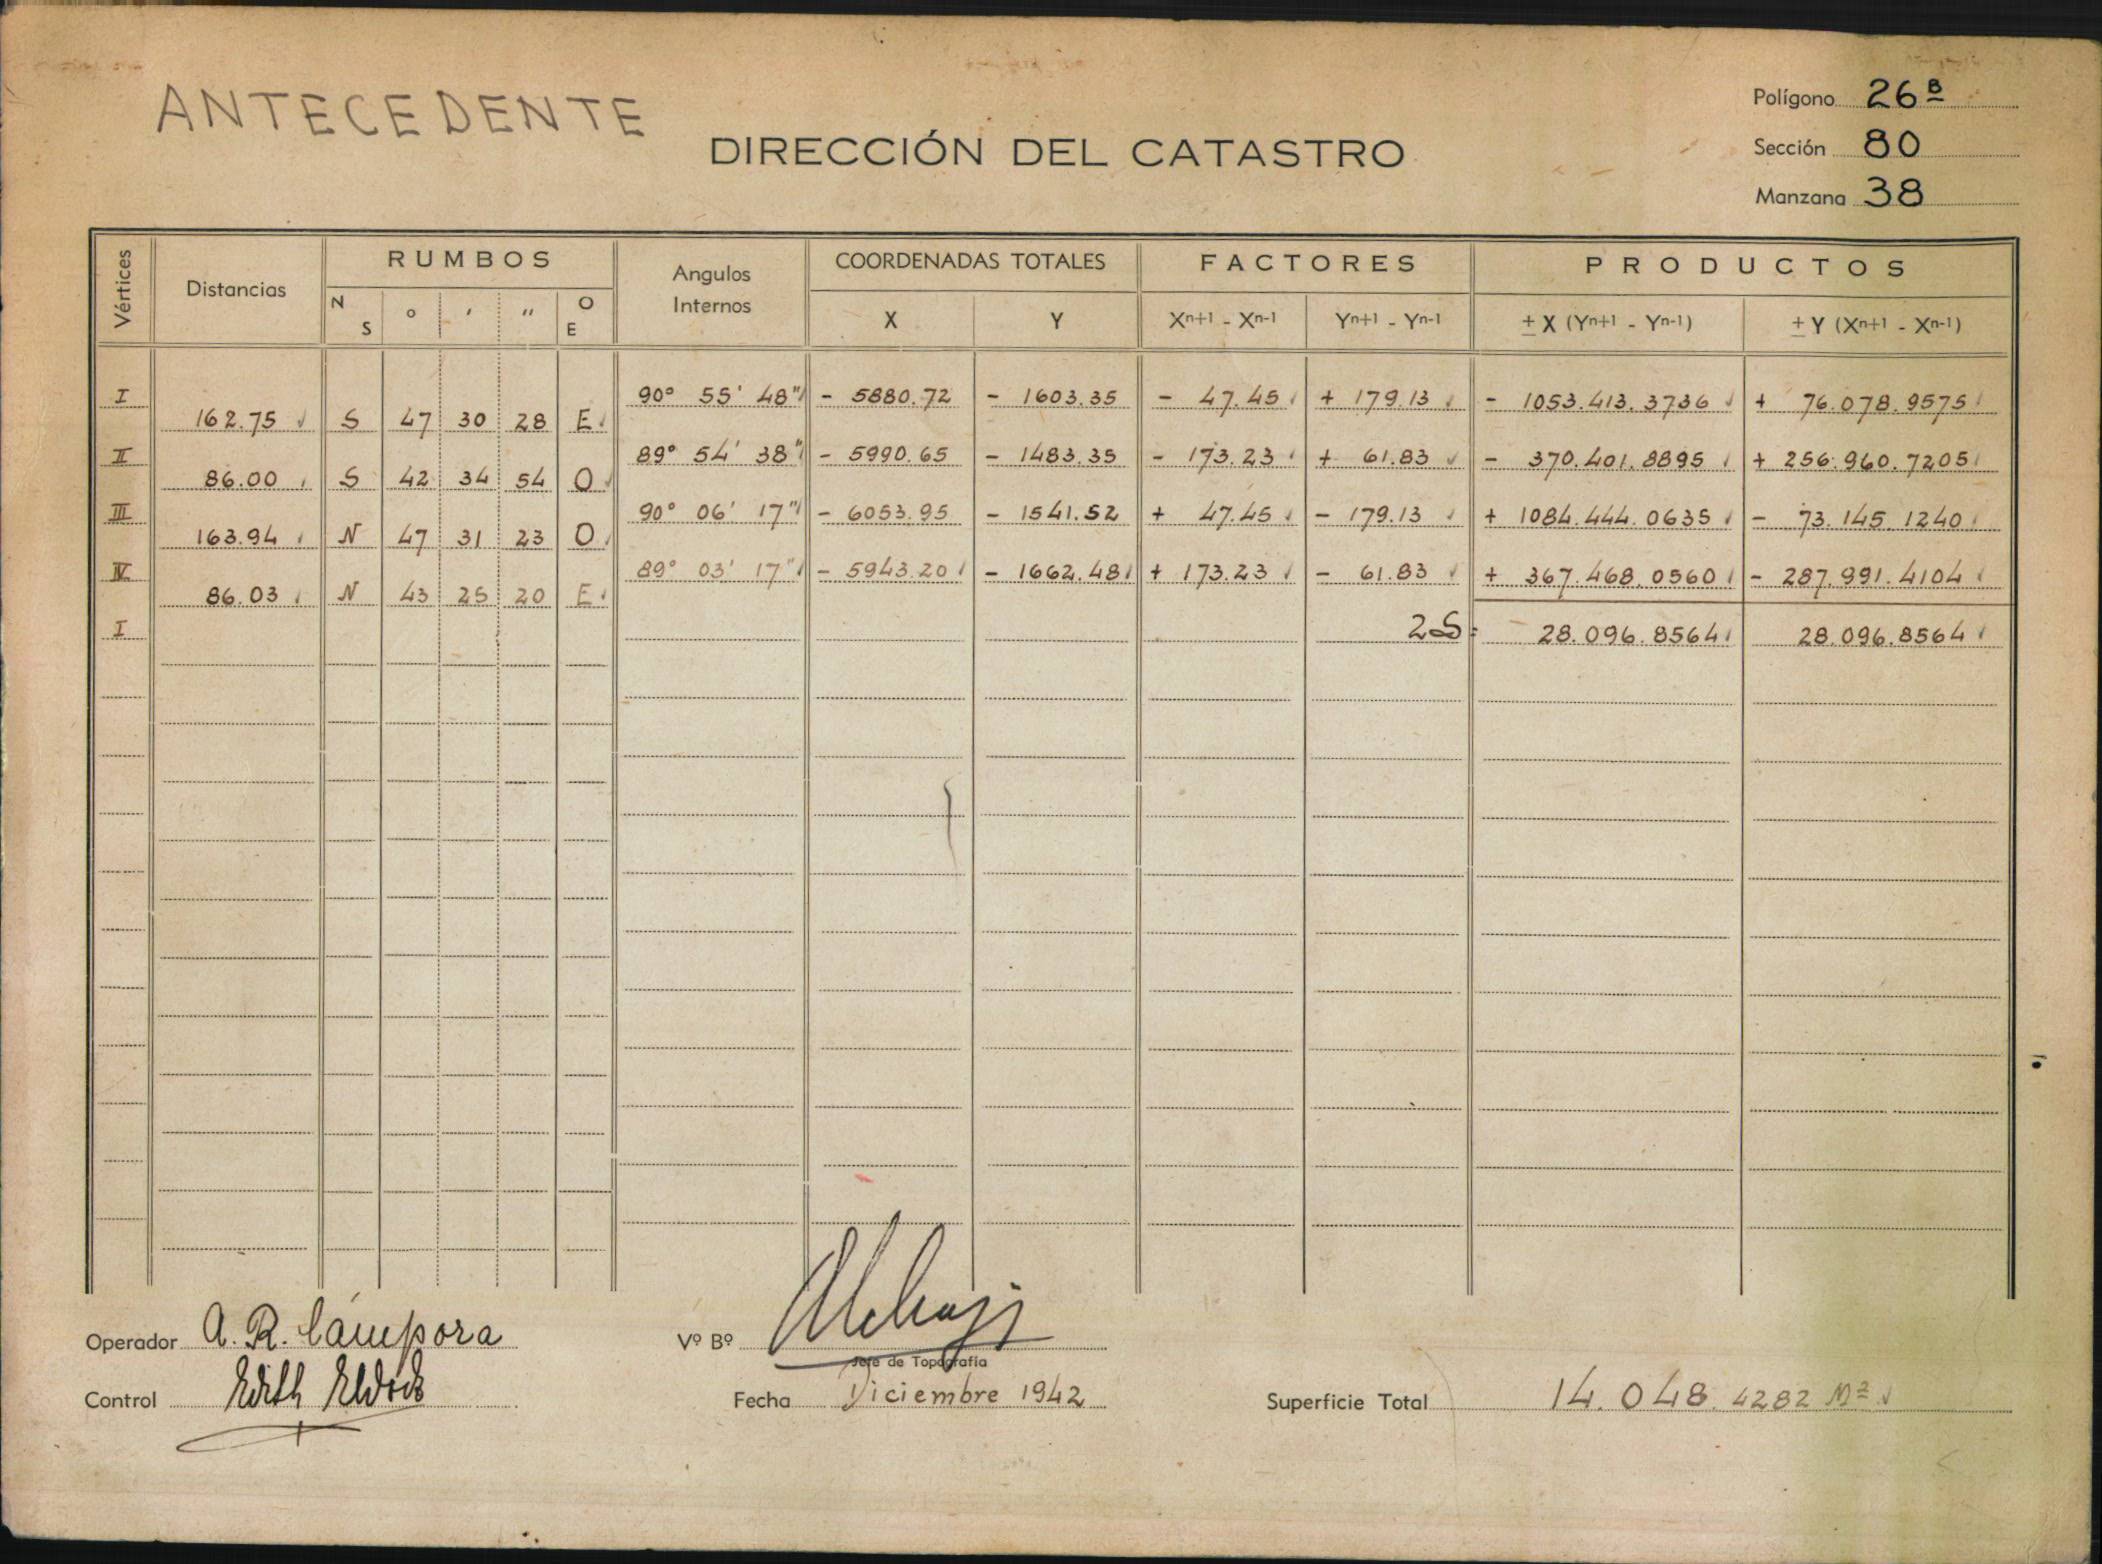 ANTECEDENTE
DIRECCIÓN DEL CATASTRO
Polígono 26 B
Sección 80
Manzana 38
Vértices Distancias RUMBOS Angulos Internos COORDENADAS TOTALES FACTORES PRODUCTOS
N S ° ' " O E X Y Xn+1 - Xn-1 Yn+1 - Yn-1 ± X (Yn+1 - Yn-1) ± Y (Xn+1 - Xn-1)
I 90° 55' 48" - 5880.72 - 1603.35 - 47.45 + 179.13 - 1053.413.3736 + 76.078.9575
162.75 S 47 30 28 E
II 89° 54' 38" - 5990.65 - 1483.35 - 173.23 + 61.83 - 370.401.8895 + 256.960.7205
86.00 S 42 34 54 O
III 90° 06' 17" - 6053.95 - 1541.52 + 47.45 - 179.13 + 1084.444.0635 - 73.145.1240
163.94 N 47 31 23 O
IV 89° 03' 17" - 5943.20 - 1662.48 + 173.23 - 61.83 + 367.468.0560 - 287.991.4104
86.03 N 43 25 20 E
I 2S: 28.096.8564 28.096.8564
Operador A. R. Cámpora
Vº Bº
Jefe de Topografía
Control Edith
Fecha Diciembre 1942
Superficie Total 14.048.4282 M2